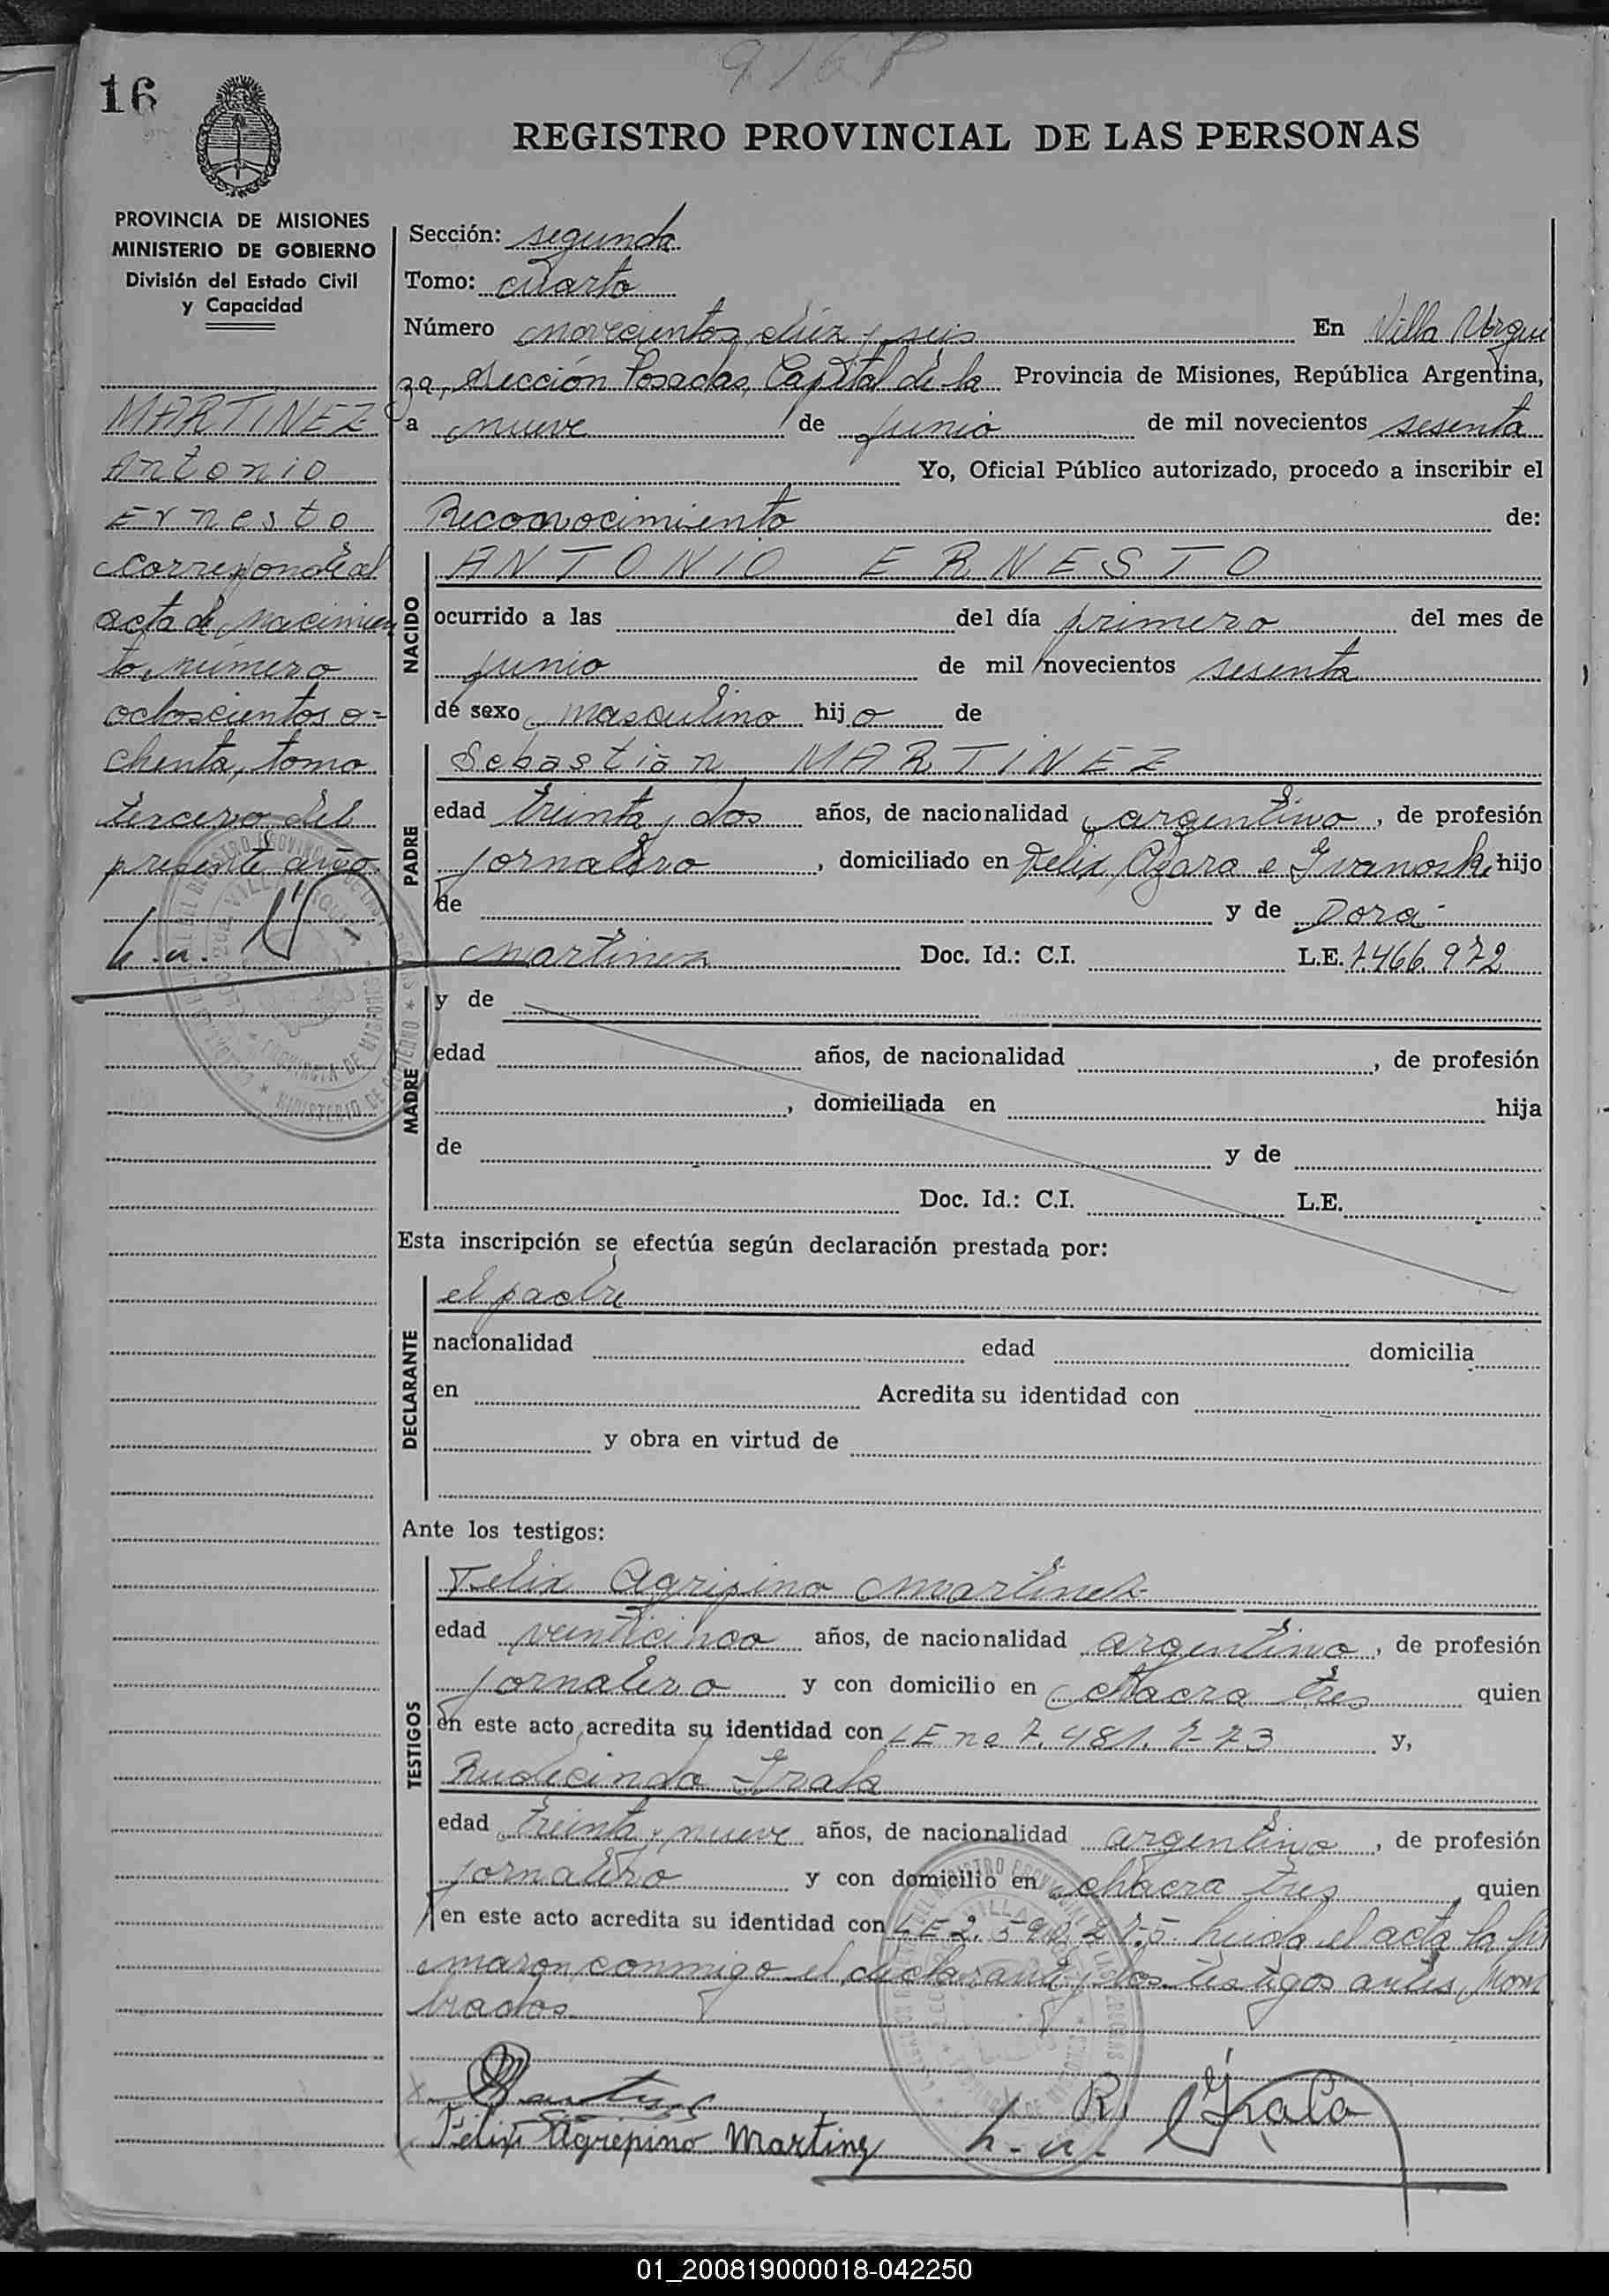 916 P
16
REGISTRO PROVINCIAL DE LAS PERSONAS
PROVINCIA DE MISIONES
MINISTERIO DE GOBIERNO
División del Estado Civil
y Capacidad
MARTINEZ
Antonio
Ernesto
corresponde al
acta de nacimien
to, número
ochoscientos o=
chenta, tomo
tercero del
presente año
Sección: segunda
Tomo: cuarto
Número novecientos diez y seis En Villa Urqui
za, sección Posadas, Capital de la Provincia de Misiones, República Argentina,
a nueve de junio de mil novecientos sesenta
Yo, Oficial Público autorizado, procedo a inscribir el
Reconocimiento de:
NACIDO
ANTONIO ERNESTO
ocurrido a las del día primero del mes de
junio de mil novecientos sesenta
de sexo masculino hijo de
PADRE
Sebastián MARTINEZ
edad treinta y dos años, de nacionalidad argentino, de profesión
jornalero, domiciliado en Felix Azara e Ivanoski hijo
de y de Dora
Martinez Doc. Id.: C.I. L.E. 7.466.972
MADRE
y de
edad años, de nacionalidad , de profesión
, domiciliada en hija
de y de
Doc. Id.: C.I. L.E.
Esta inscripción se efectúa según declaración prestada por:
DECLARANTE
el padre
nacionalidad edad domicilia
en Acredita su identidad con
y obra en virtud de
Ante los testigos:
TESTIGOS
Felix Agripino Martinez
edad veinticinco años, de nacionalidad argentino, de profesión
jornalero y con domicilio en chacra tres quien
en este acto acredita su identidad con LE no 7.481. y,
Rudecindo Irala
edad treinta y nueve años, de nacionalidad argentino, de profesión
jornalero y con domicilio en chacra tres, quien
en este acto acredita su identidad con LE 2. leida el acta la fir
maron conmigo el declarante y los testigos antes nom
brados
Felix Agripino Martinz
R. Irala
01_200819000018-042250